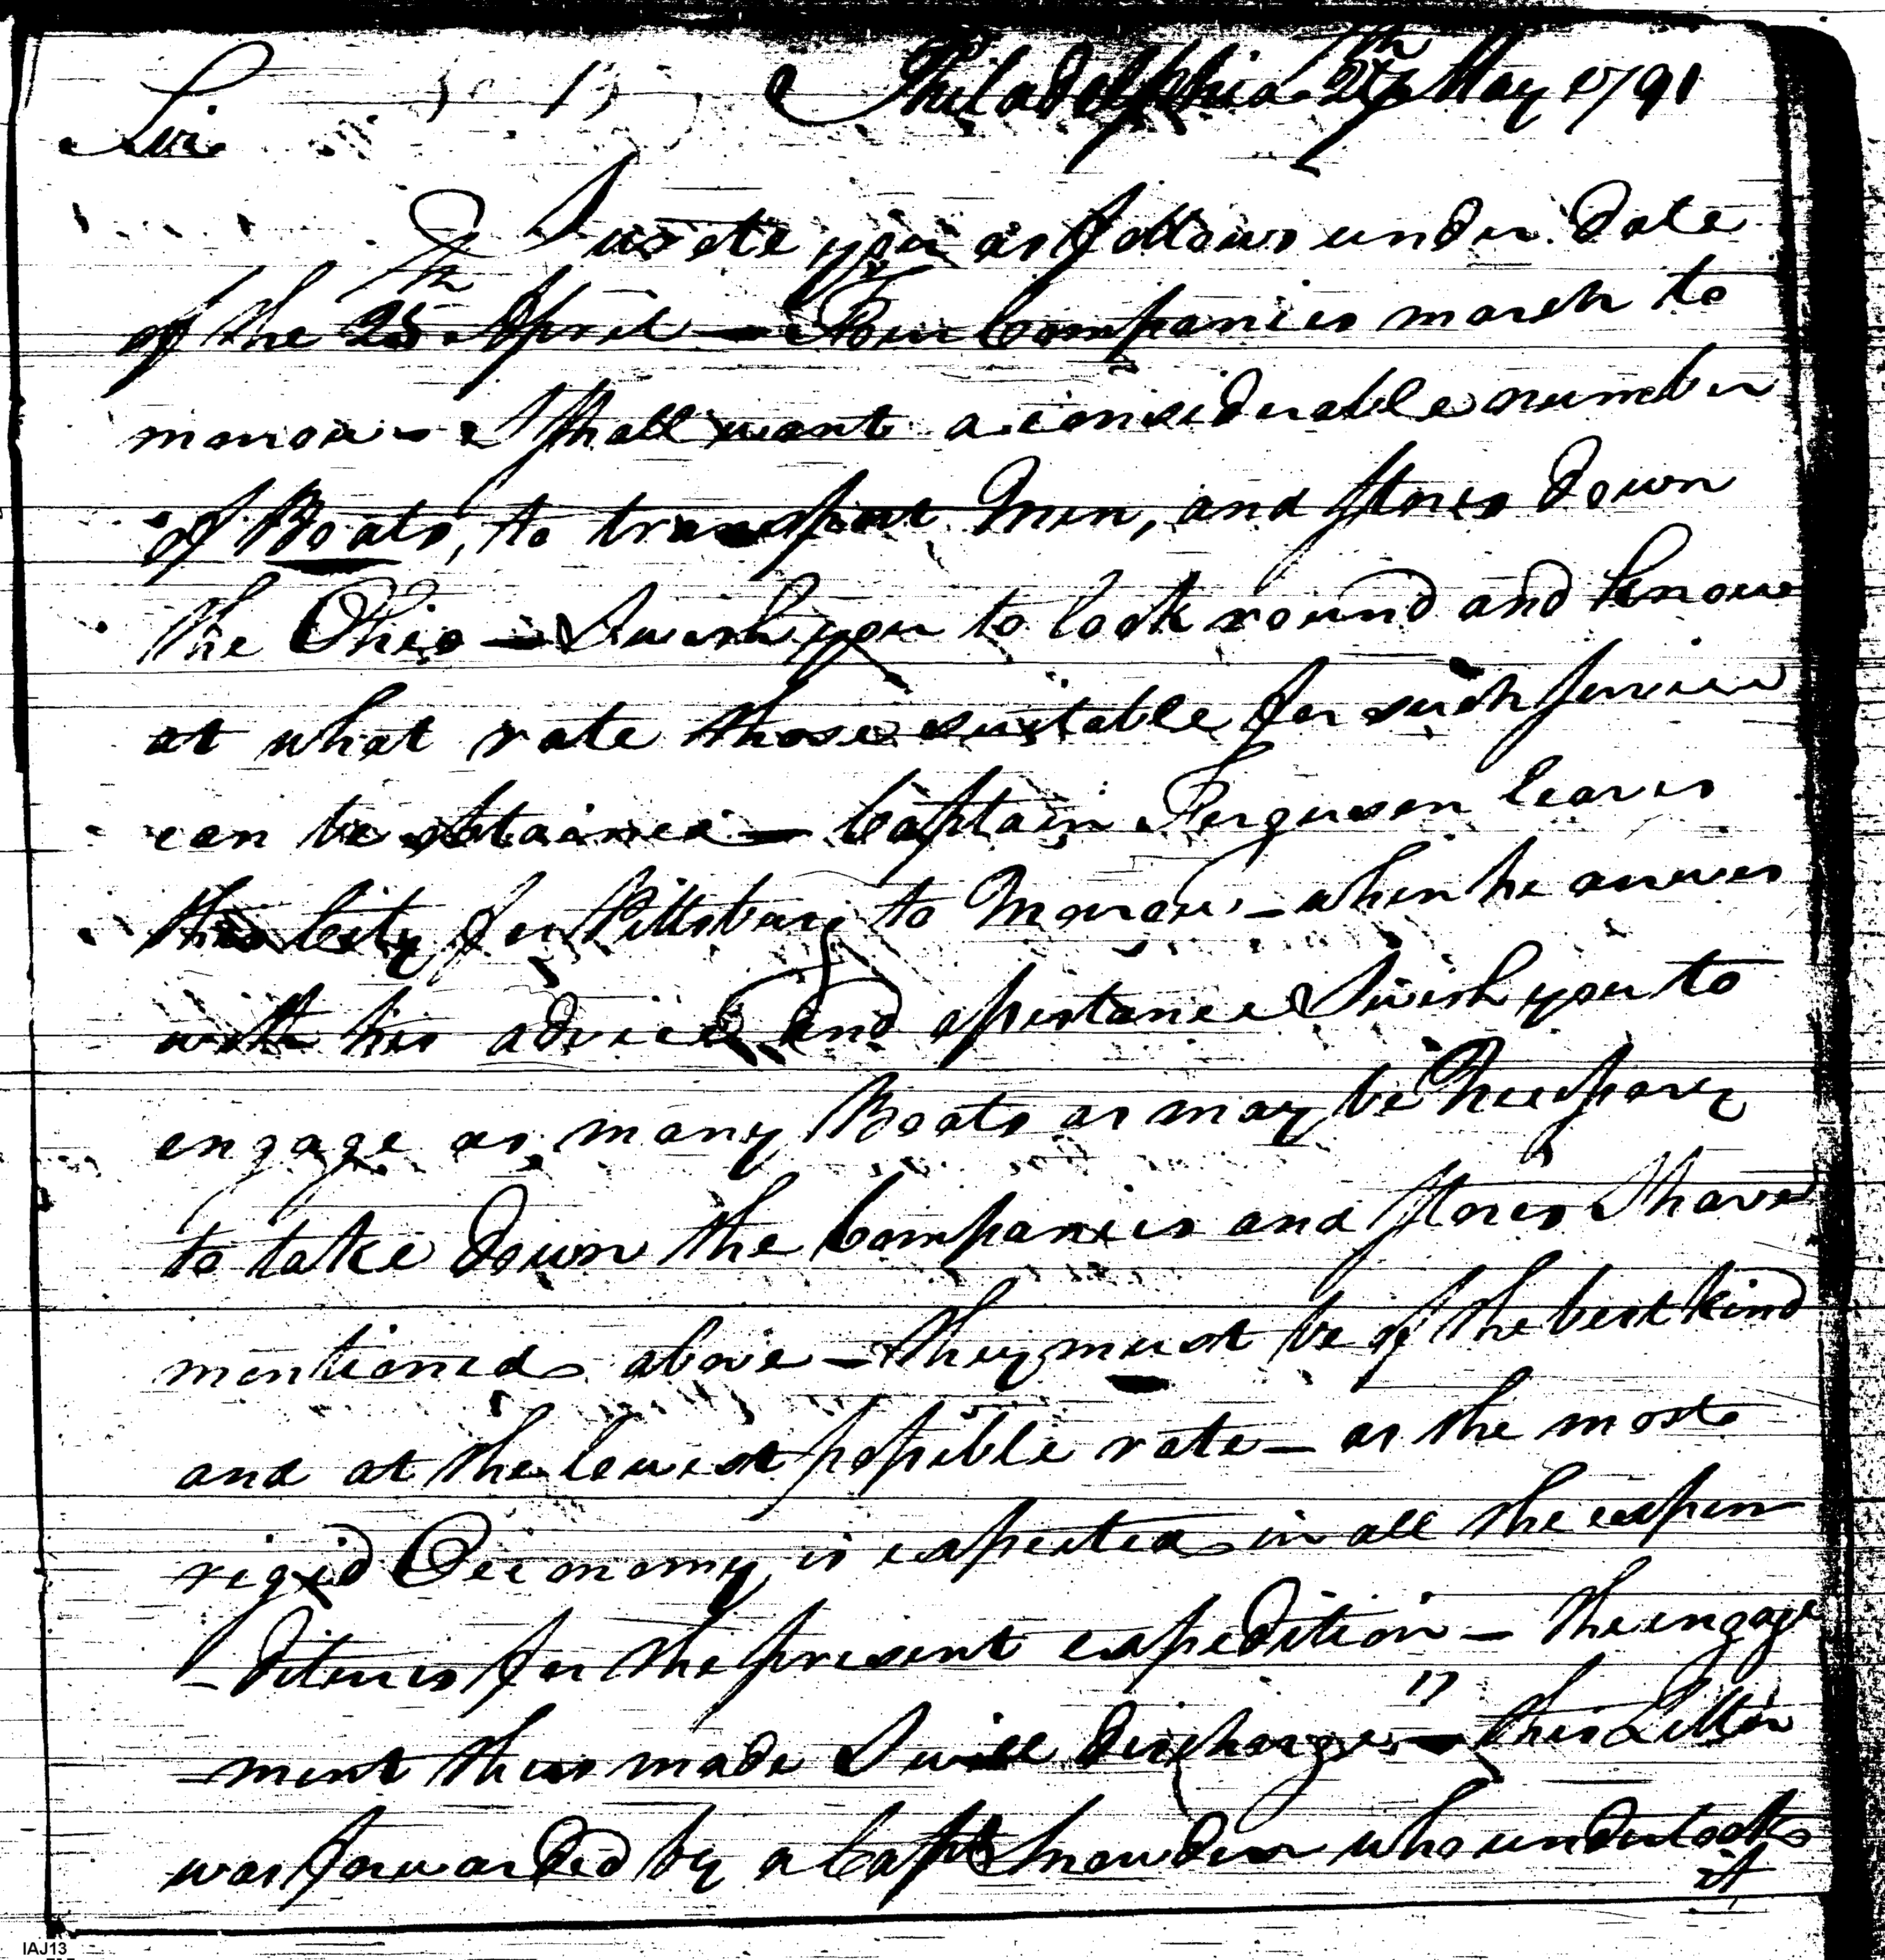 Philadelphia 27th May 1791
Sir
I wrote you as follows under date
of the 25th April — "Four Companies march to
morrow — I shall want a considerable number
of Boats, to transport Men, and stores down
the Ohio — I wish you to look round and know
at what rate those suitable for such service
can be obtained — Captain Ferguson leaves
this City for Pittsburg to Morrow — when he arrives
with his advice and assistance I wish you to
engage as many Boats as may be Necessary
to take down the Companies and stores I have
mentioned above — they must be of the best kind
and at the lowest possible rate — as the most
rigid Oeconomy is expected in all the expen
-ditures for the present expedition — the engage
-ment thus made I will discharge" — this Letter
was forwarded by a Capt Snowden who undertook
it
IAJ13